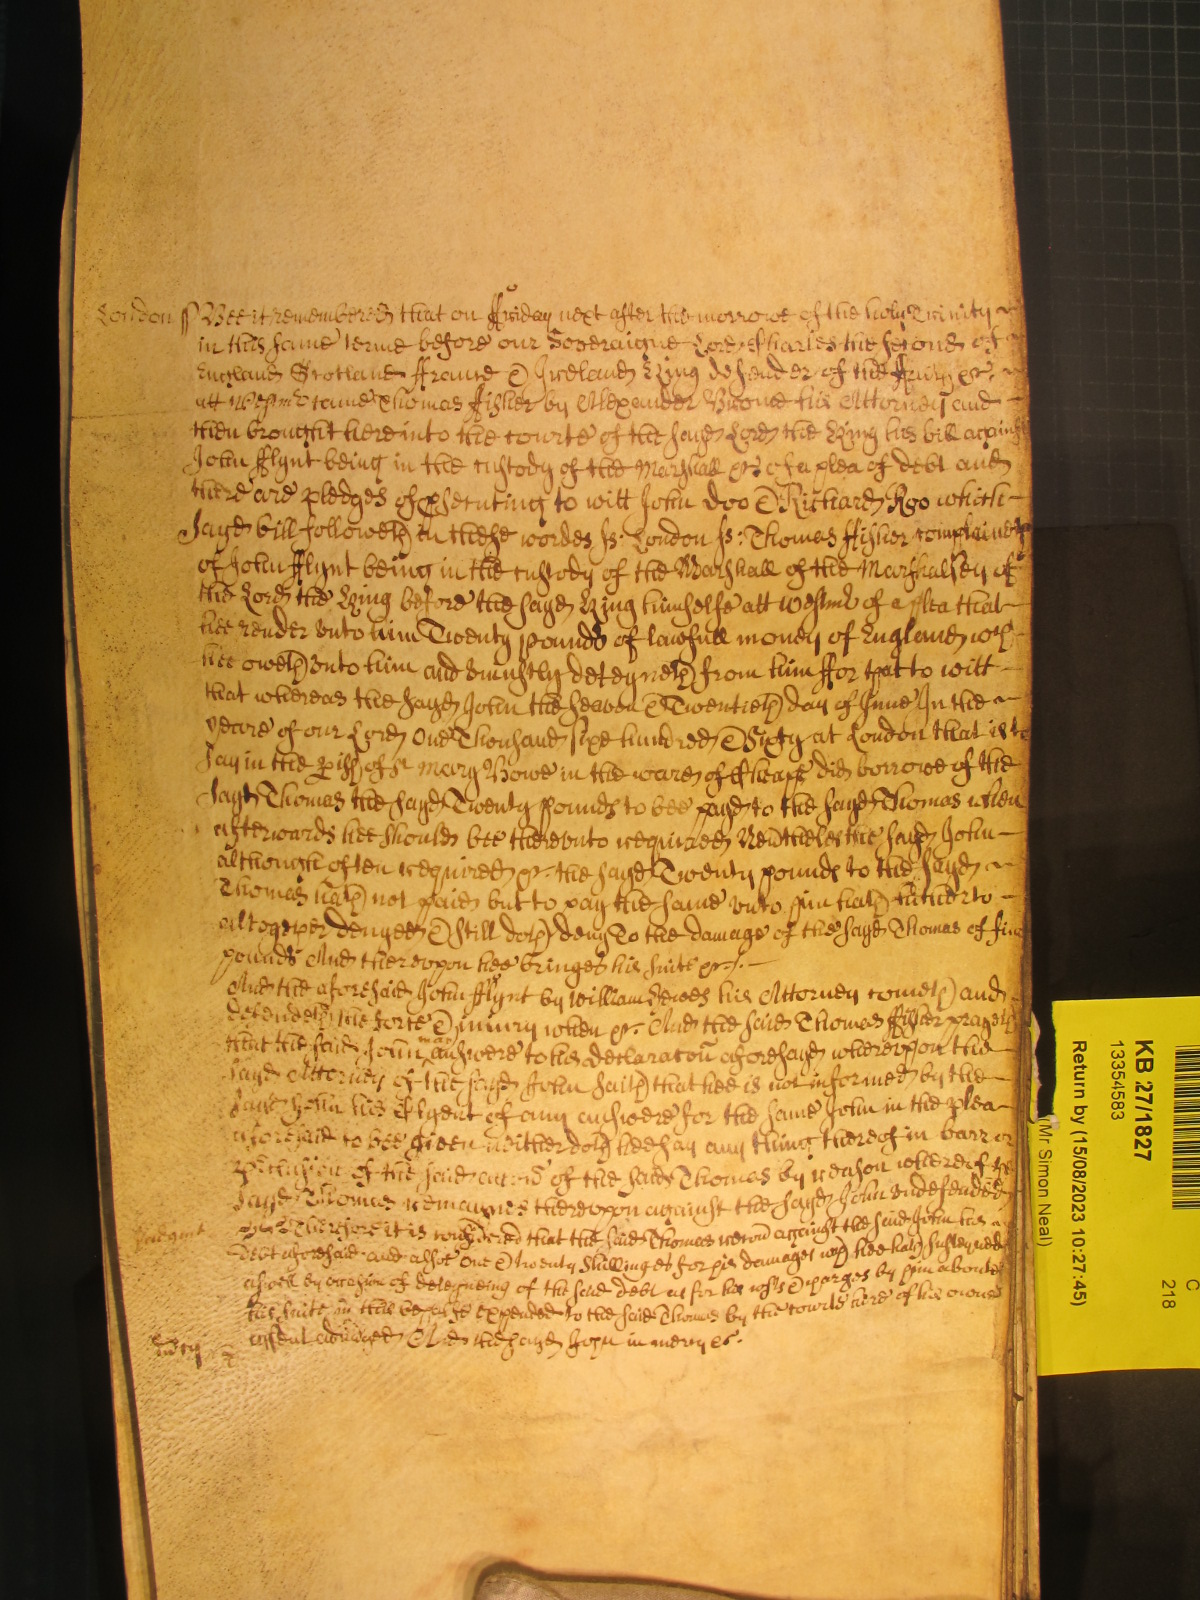 London ss Bee it remembered that on ffriday next after the morrowe of the holy Trinity
in this same terme before our Soveraigne Lord Charles the second of
England Scotland ffrance & Ireland King defender of the ffaith &c.
att Westmr came Thomas ffisher by Alexander his Attorney and
then brought here into the courte of the sayd Lord the King his bill against
John fflynt being in the custody of the Marshall &c. of a plea of debt and
there are pledges of psecuting to witt John Doo & Richard Roo which
sayd bill followeth in these wordes ss. London ss: Thomas ffisher complaineth
of John fflynt being in the custody of the Marshall of the Marshalsey of
the Lord the King before the sayd King himselfe att Westmr of a plea that
hee render unto him Twenty pounds of lawfull money of England wch
hee oweth unto him and uniustly deteyneth from him ffor that to witt
that whereas the sayd John the seaven & Twentieth day of June In the
yeare of our Lord One Thousand sixe hundred & Sixty at London that is to
say in the pish of St Mary Bowe in the ward of Cheape did borrowe of the
sayd Thomas the sayd Twenty pounds to bee payd to the sayd Thomas when
afterwards hee should bee thereunto required Nevtheles the sayd John
although often required &c. the sayd Twenty pounds to the sayd
Thomas hath not paid but to pay the same unto him hath hitherto
altogether denyed & still doth deny To the damage of the sayd Thomas of five
pounds And thereupon hee bringes his suite &c.
And the aforesaid John fflynt by William his Attorney cometh and
defendeth the force & iniury when &c. And the said Thomas ffisher prayeth
that the said John may answere to his declaracon aforesayd whereupon the
sayd Attorney of the sayd John saith that hee is not informed by the
sayd John his Clyent of any answere for the same John in the plea
aforesaid to bee given neither doth hee say any thing thereof in barr or
preclusion of the said accon of the said Thomas by reason whereof the
sayd Thomas remaynes thereupon against the sayd John undefended
&c. Therefore it is considered that the said Thomas recou against the said John his
Iudgmt
debt aforesaid and alsoe one & twenty shillinges for his damages wch hee hath susteyned
aswell by occasion of deteyneing of the said debt as for his costs & charges by him aboute
his suite in this behalfe expended to the said Thomas by the courte here of his owne
assent adiudged And the sayd John in mercy &c.
mercy
KB 27/1827
13354583
Return by (15/08/2023 10:27:45)
(Mr Simon Neal)
C
218